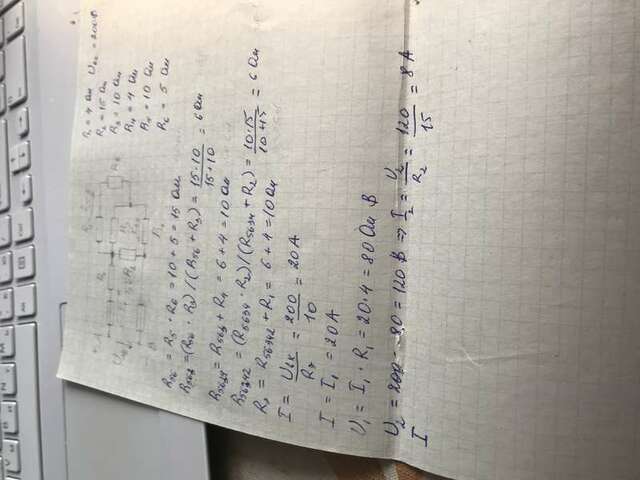 R₁ = 4 Ом U вх = 200 В
R₂ = 15 Ом
R₃ = 10 Ом
R₄ = 4 Ом
R₅ = 10 Ом
R₆ = 5 Ом
R₅₆ = R₅ · R₆ = 10 + 5 = 15 Ом
R₅₆₃ = (R₅₆ · R₃) / (R₅₆ + R₃) = 15·10 / 15+10 = 6 Ом
R₅₆₃₄ = R₅₆₃ + R₄ = 6 + 4 = 10 Ом
R₅₆₃₄₂ = (R₅₆₃₄ · R₂) / (R₅₆₃₄ + R₂) = 10·15 / 10+15 = 6 Ом
R_э = R₅₆₃₄₂ + R₁ = 6 + 4 = 10 Ом
I = U вх / R_э = 200 / 10 = 20 А
I = I₁ = 20 А
U₁ = I₁ · R₁ = 20·4 = 80 Ом В
U₂ = 200 - 80 = 120 В => I₂ = U₂ / R₂ = 120 / 15 = 8 А
I